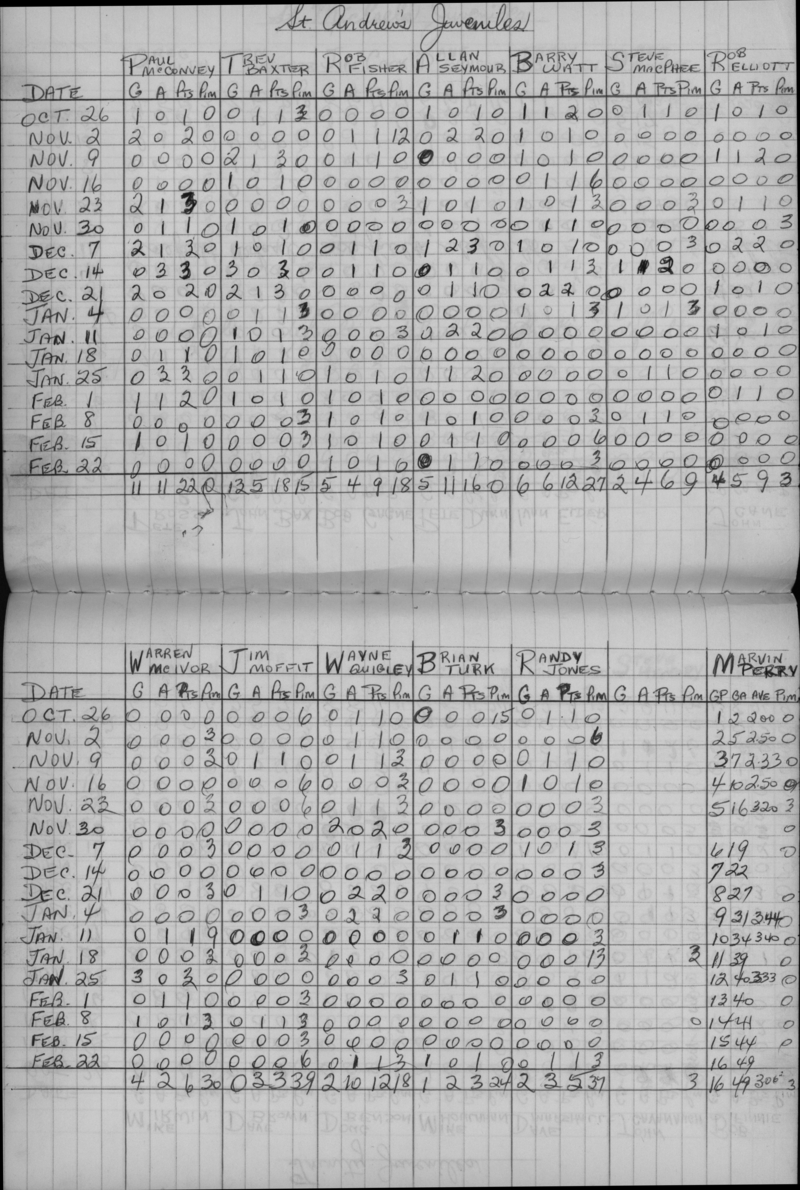 St Andrew's Juveniles
PAUL MCCONVEY TREV BAXTER ROB FISHER ALLAN SEYMOUR BARRY WATT STEVE MACPHEE ROB ELLIOTT
DATE G A Pts Pim G A Pts Pim G A Pts Pim G A Pts Pim G A Pts Pim G A Pts Pim G A Pts Pim
OCT. 26 1 0 1 0 0 1 1 3 0 0 0 0 1 0 1 0 1 1 2 0 0 1 1 0 1 0 1 0
NOV. 2 2 0 2 0 0 0 0 0 0 1 1 12 0 2 2 0 1 0 1 0 0 0 0 0 0 0 0 0
NOV. 9 0 0 0 0 2 1 3 0 0 1 1 0 0 0 0 0 1 0 1 0 0 0 0 0 1 1 2 0
NOV. 16 0 0 0 0 1 0 1 0 0 0 0 0 0 0 0 0 0 1 1 6 0 0 0 0 0 0 0 0
NOV. 23 2 1 3 0 0 0 0 0 0 0 0 3 1 0 1 0 1 0 1 3 0 0 0 3 0 1 1 0
NOV. 30 0 1 1 0 1 0 1 0 0 0 0 0 0 0 0 0 0 1 1 0 0 0 0 0 0 0 0 3
DEC. 7 2 1 3 0 1 0 1 0 0 1 1 0 1 2 3 0 1 0 1 0 0 0 0 3 0 2 2 0
DEC. 14 0 3 3 0 3 0 3 0 0 1 1 0 0 1 1 0 0 1 1 3 1 1 2 0 0 0 0 0
DEC. 21 2 0 2 0 2 1 3 0 0 0 0 0 0 1 1 0 0 2 2 0 0 0 0 0 1 0 1 0
JAN. 4 0 0 0 0 0 1 1 3 0 0 0 0 0 0 0 0 1 0 1 3 1 0 1 3 0 0 0 0
JAN. 11 0 0 0 0 1 0 1 3 0 0 0 3 0 2 2 0 0 0 0 0 0 0 0 0 1 0 1 0
JAN. 18 0 1 1 0 1 0 1 0 0 0 0 0 0 0 0 0 0 0 0 0 0 0 0 0 0 0 0 0
JAN. 25 0 3 3 0 0 1 1 0 1 0 1 0 1 1 2 0 0 0 0 0 0 1 1 0 0 0 0 0
FEB. 1 1 1 2 0 1 0 1 0 1 0 1 0 0 0 0 0 0 0 0 0 0 0 0 0 0 1 1 0
FEB. 8 0 0 0 0 0 0 0 3 1 0 1 0 1 0 1 0 0 0 0 3 0 1 1 0 0 0 0 0
FEB. 15 1 0 1 0 0 0 0 3 1 0 1 0 0 1 1 0 0 0 0 6 0 0 0 0 0 0 0 0
FEB. 22 0 0 0 0 0 0 0 0 1 0 1 0 0 1 1 0 0 0 0 3 0 0 0 0 0 0 0 0
11 11 22 0 13 5 18 15 5 4 9 18 5 11 16 0 6 6 12 27 2 4 6 9 4 5 9 3
WARREN MCIVOR JIM MOFFIT WAYNE QUIGLEY BRIAN TURK RANDY JONES MARVIN PERRY
DATE G A Pts Pim G A Pts Pim G A Pts Pim G A Pts Pim G A Pts Pim G A Pts Pim GP GA AVE Pim
OCT. 26 0 0 0 0 0 0 0 6 0 1 1 0 0 0 0 15 0 1 1 0 1 2 200 0
NOV. 2 0 0 0 3 0 0 0 0 0 1 1 0 0 0 0 0 0 0 0 6 2 5 250 0
NOV. 9 0 0 0 3 0 1 1 0 0 1 1 3 0 0 0 0 0 1 1 0 3 7 233 0
NOV. 16 0 0 0 0 0 0 0 6 0 0 0 3 0 0 0 0 1 0 1 0 4 10 250 0
NOV. 23 0 0 0 3 0 0 0 6 0 1 1 3 0 0 0 0 0 0 0 3 5 16 320 3
NOV. 30 0 0 0 0 0 0 0 0 2 0 2 0 0 0 0 3 0 0 0 3 0
DEC. 7 0 0 0 3 0 0 0 0 0 1 1 3 0 0 0 0 1 0 1 3 6 19 0
DEC. 14 0 0 0 0 0 0 0 0 0 0 0 0 0 0 0 0 0 0 0 3 7 22
DEC. 21 0 0 0 3 0 1 1 0 0 2 2 0 0 0 0 3 0 0 0 0 8 27 0
JAN. 4 0 0 0 0 0 0 0 3 0 2 2 0 0 0 0 3 0 0 0 0 9 31 344 0
JAN. 11 0 1 1 9 0 0 0 0 0 0 0 0 0 1 1 0 0 0 0 3 10 34 340 0
JAN. 18 0 0 0 3 0 0 0 3 0 0 0 0 0 0 0 0 0 0 0 13 3 11 39 0
JAN. 25 3 0 3 0 0 0 0 0 0 0 0 3 0 1 1 0 0 0 0 0 12 40 333 0
FEB. 1 0 1 1 0 0 0 0 3 0 0 0 0 0 0 0 0 0 0 0 0 13 40 0
FEB. 8 1 0 1 3 0 1 1 3 0 0 0 0 0 0 0 0 0 0 0 0 0 14 41 0
FEB. 15 0 0 0 0 0 0 0 3 0 0 0 0 0 0 0 0 0 0 0 0 15 44 0
FEB. 22 0 0 0 0 0 0 0 6 0 1 1 3 1 0 1 0 0 1 1 3 16 49
4 2 6 30 0 3 3 39 2 10 12 18 1 2 3 24 2 3 5 37 3 16 49 306² 3